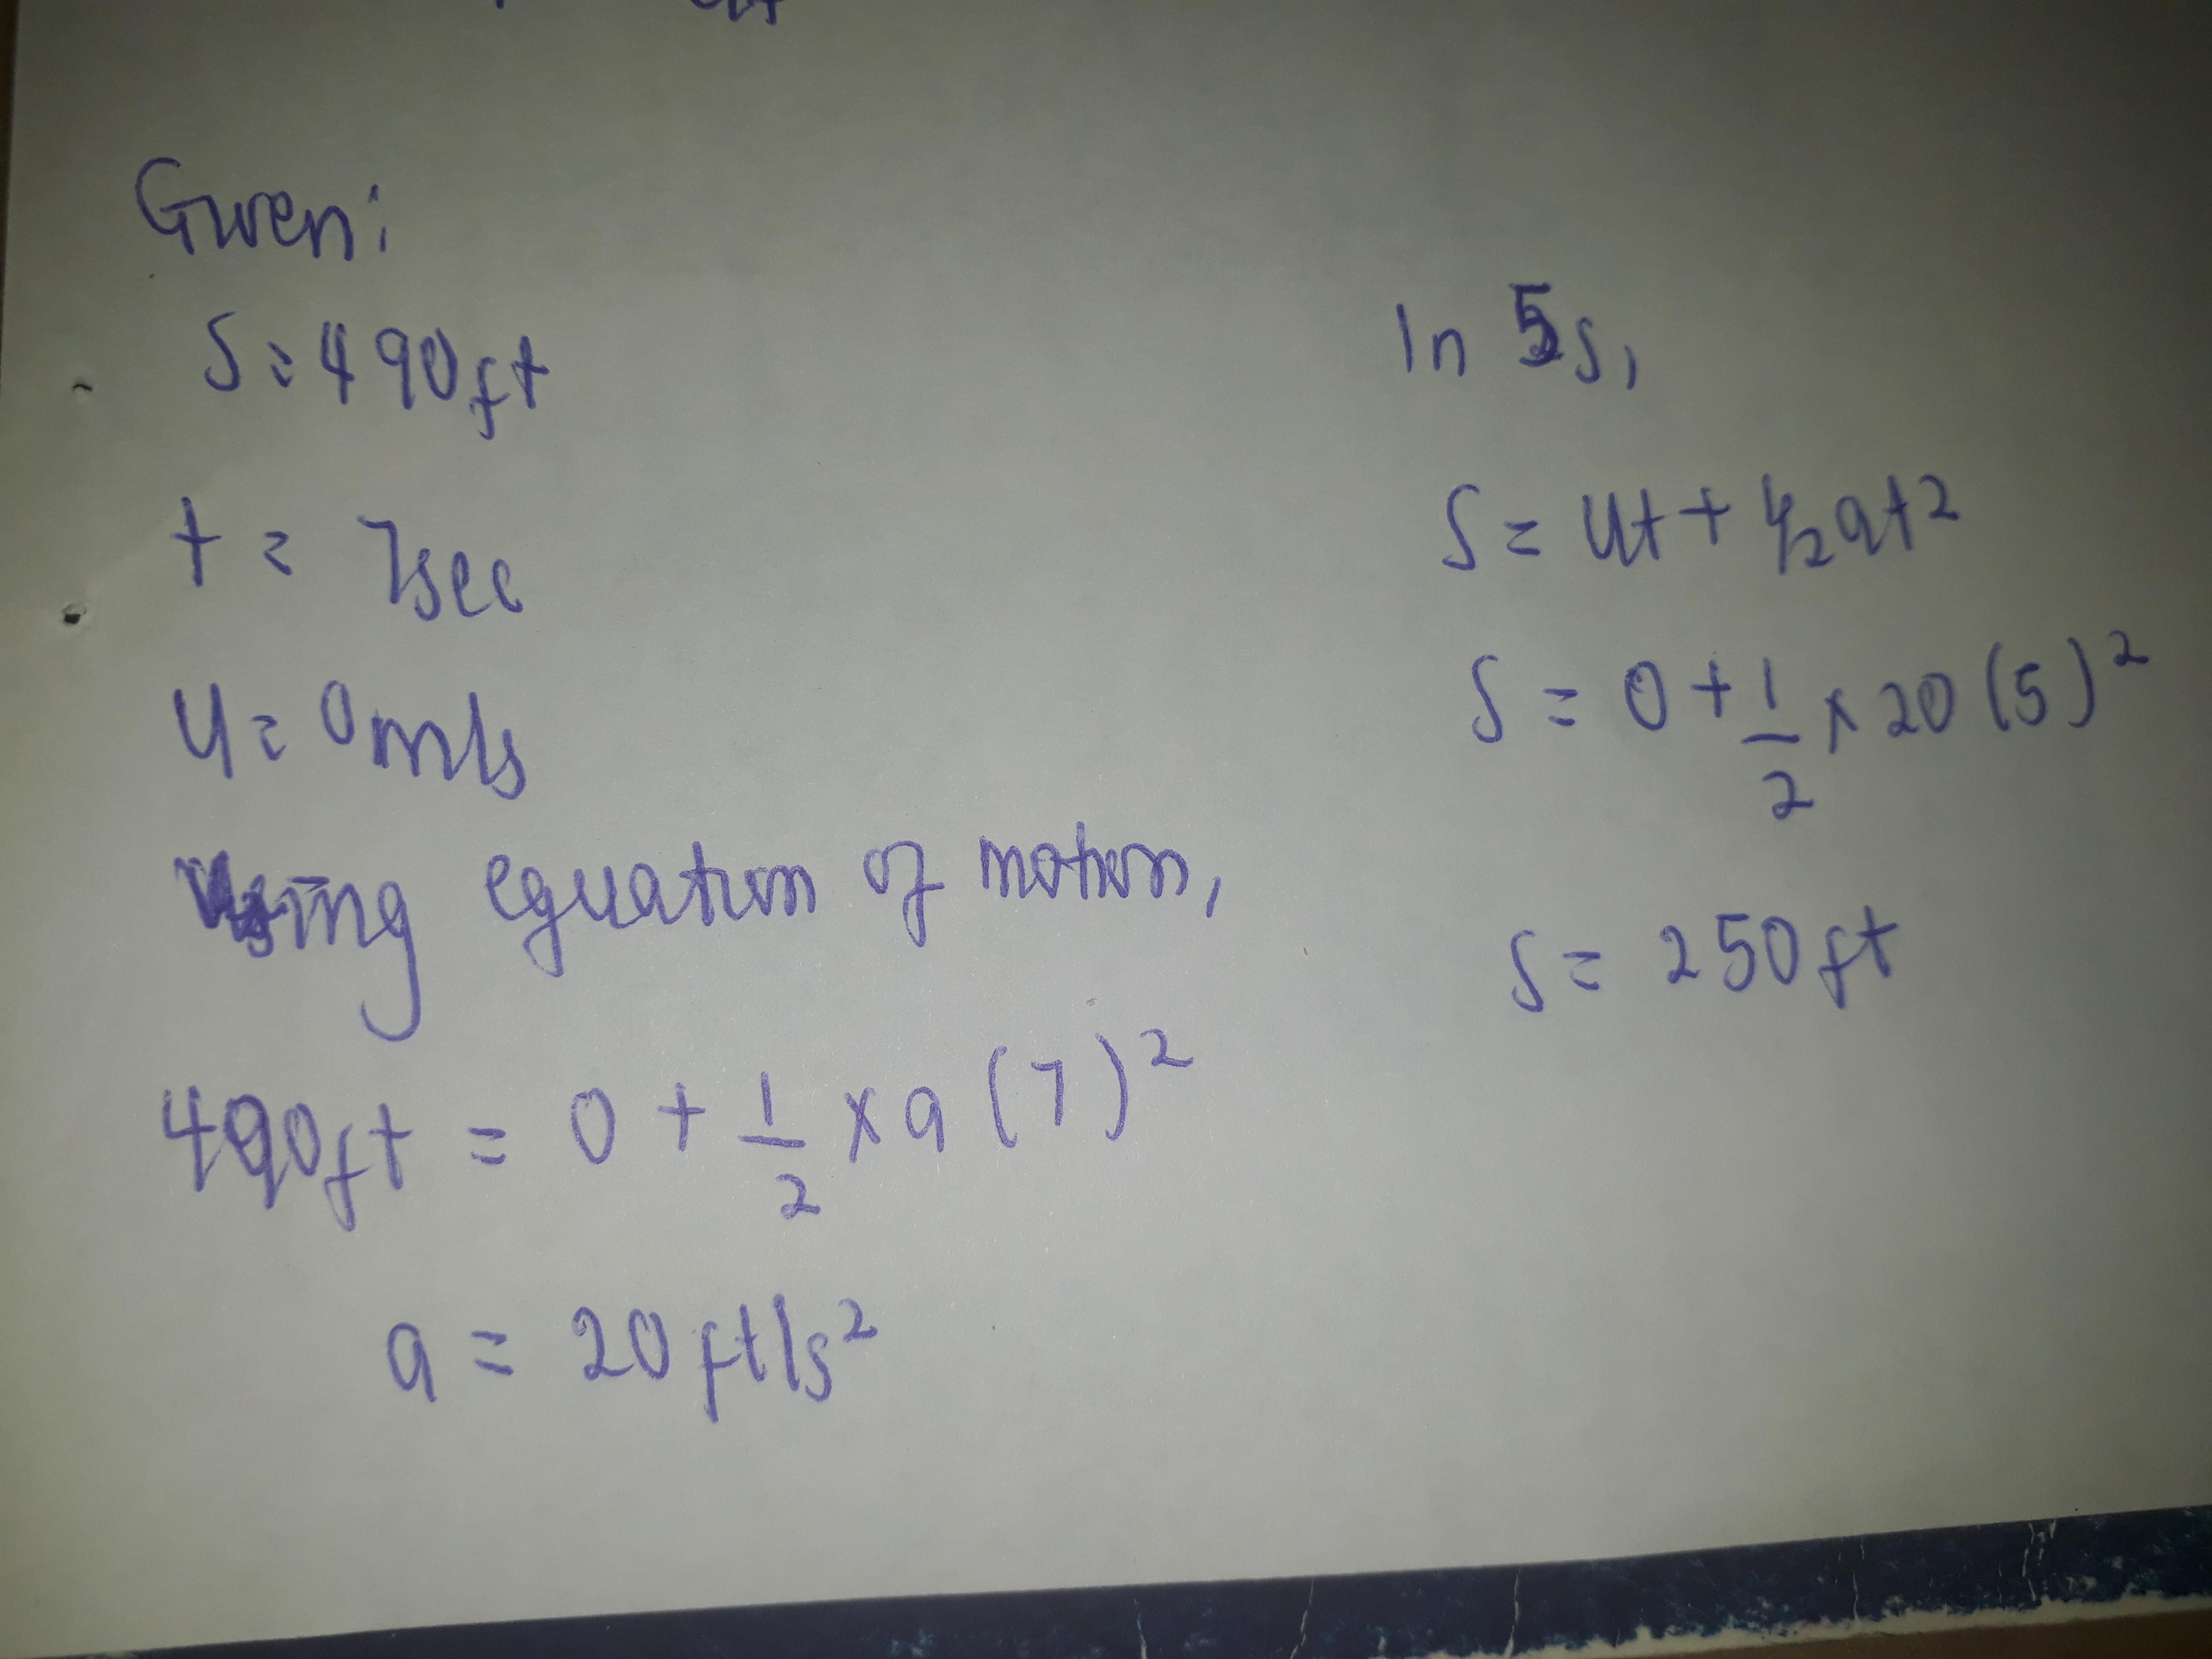 Given:
S = 490ft
t = 7sec
u = 0m/s
Using equation of motion,
490ft = 0 + 1/2 × a (7)²
a = 20ft/s²
In 5s,
S = ut + 1/2at²
S = 0 + 1/2 × 20 (5)²
S = 250ft